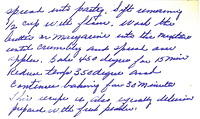 spread into pastry. Sift remaining
½ cup with flour. Work the
butter or margarine into the mixture
until crumbly and spread over
apples. Bake 450 degree for 15 min
Reduce temp 350 degree and
continue baking for 30 minutes
This recipe is also equally delicious
prepared with fresh peaches.